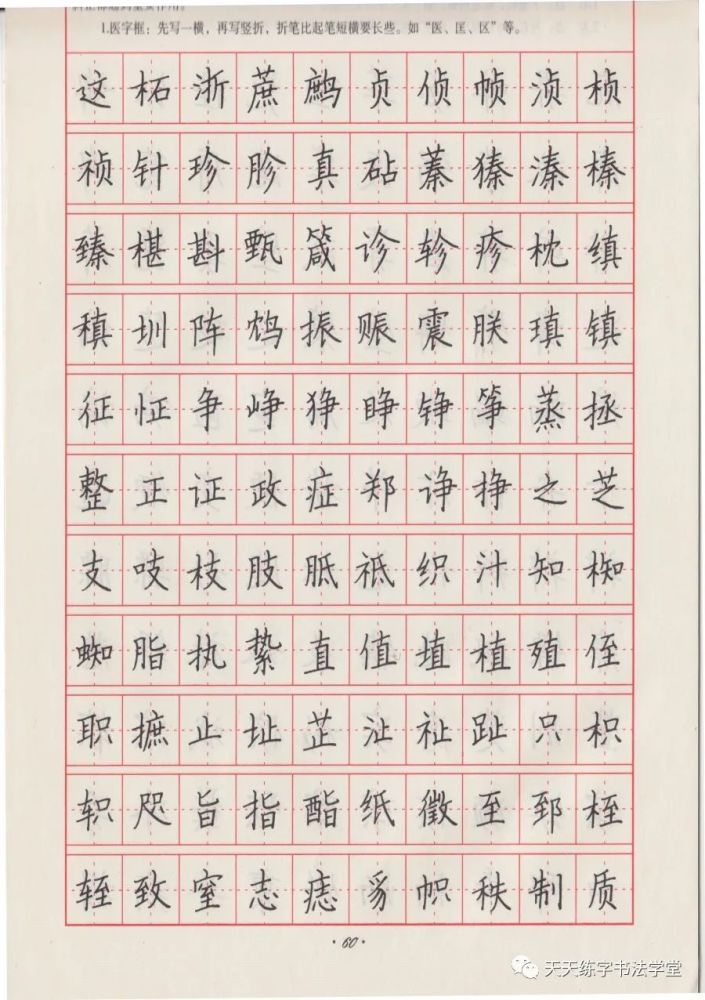 1.医字框：先写一横，再写竖折，折笔比起笔短横要长些。如“医、匡、区”等。
这柘浙蔗鹧贞侦帧浈桢
祯针珍胗真砧蓁獉溱榛
臻椹斟甄箴诊轸疹枕缜
稹圳阵鸩振赈震朕瑱镇
征怔争峥狰睁铮筝蒸拯
整正证政症郑诤挣之芝
支吱枝肢胝祗织汁知椥
蜘脂执絷直值埴植殖侄
职摭止址芷沚祉趾只枳
轵咫旨指酯纸徵至郅桎
轾致窒志痣豸帜秩制质
·60·
天天练字书法学堂